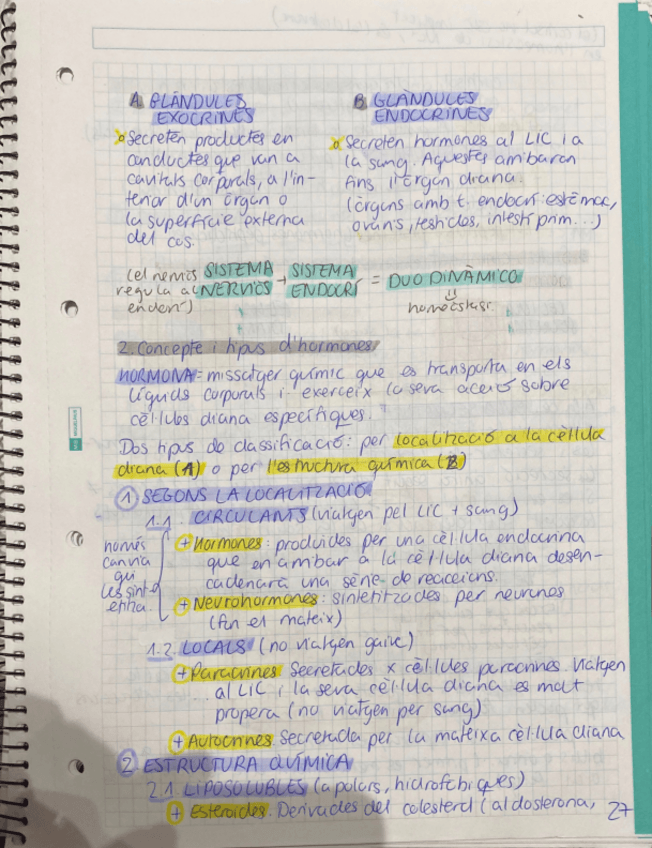 A GLÀNDULES
EXOCRINES
Secreten productes en
conductes que van a
cavitats corporals, a l'in-
terior d'un òrgan o
la superfície externa
del cos.
B GLÀNDULES
ENDOCRINES
Secreten hormones al LIC i a
la sang. Aquestes arribaran
fins l'òrgan diana.
(òrgans amb t. endocrí: estómac,
ovaris, testicles, intestí prim...)
(el nerviós
regula al
endocrí)
SISTEMA
NERVIÓS
+
SISTEMA
ENDOCRÍ
= DUO DINÀMICO
homeòstasi
2. Concepte i tipus d'hormones
HORMONA = missatger químic que es transporta en els
líquids corporals i exerceix la seva acció sobre
cèl·lules diana específiques.
Dos tipus de classificació: per localització a la cèl·lula
diana (A) o per l'estructura química (B)
1 SEGONS LA LOCALITZACIÓ
1.1. CIRCULANTS (viatgen pel LIC + sang)
només
canvia
qui
les sint
etitza.
+ Hormones: produïdes per una cèl·lula endocrina
que en arribar a la cèl·lula diana desen-
cadenarà una sèrie de reaccions.
+ Neurohormones: sintetitzades per neurones
(fan el mateix)
1.2. LOCALS (no viatgen gaire)
+ Paracrines Secretades x cèl·lules paracrines. Viatgen
al LIC i la seva cèl·lula diana es molt
propera (no viatgen per sang)
+ Autocrines. Secretada per la mateixa cèl·lula diana
2 ESTRUCTURA QUÍMICA
2.1 LIPOSOLUBLES (apolars, hidrofòbiques)
+ Esteroides. Derivades del colesterol (aldosterona,
27